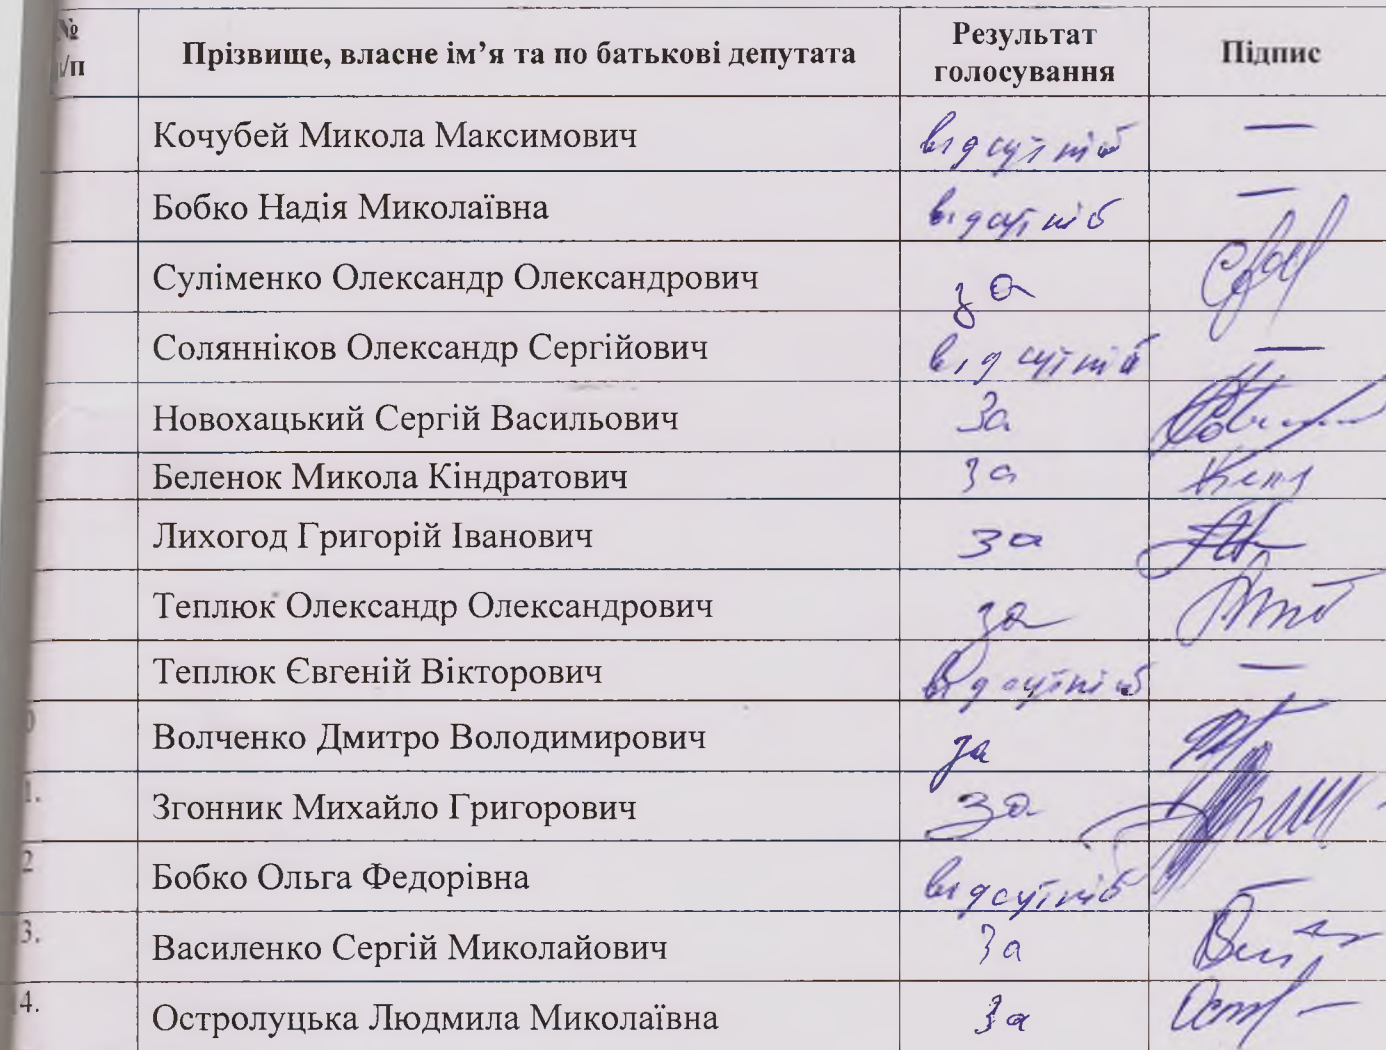 № Прізвище, власне ім’я та по батькові депутата Результат Підпис
/п голосування
Кочубей Микола Максимович відсутній —
Бобко Надія Миколаївна відсутній —
Суліменко Олександр Олександрович за
Солянніков Олександр Сергійович відсутній —
Новохацький Сергій Васильович За
Беленок Микола Кіндратович за
Лихогод Григорій Іванович за
Теплюк Олександр Олександрович за
Теплюк Євгеній Вікторович відсутній —
0 Волченко Дмитро Володимирович за
1. Згонник Михайло Григорович за
2 Бобко Ольга Федорівна відсутній —
3. Василенко Сергій Миколайович За
4. Остролуцька Людмила Миколаївна За